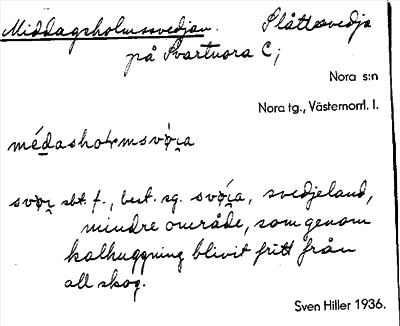 Middagsholmssvedjan. Slåttesvedja
på Svartnora C;
Nora s:n
Nora tg., Västernorrl. l.
médasholmsvø̀i̯a
svøi̯ sbt. f., best. sg. svǿi̯a, svedjeland,
mindre område, som genom
kalhuggning blivit fritt från
all skog.
Sven Hiller 1936.